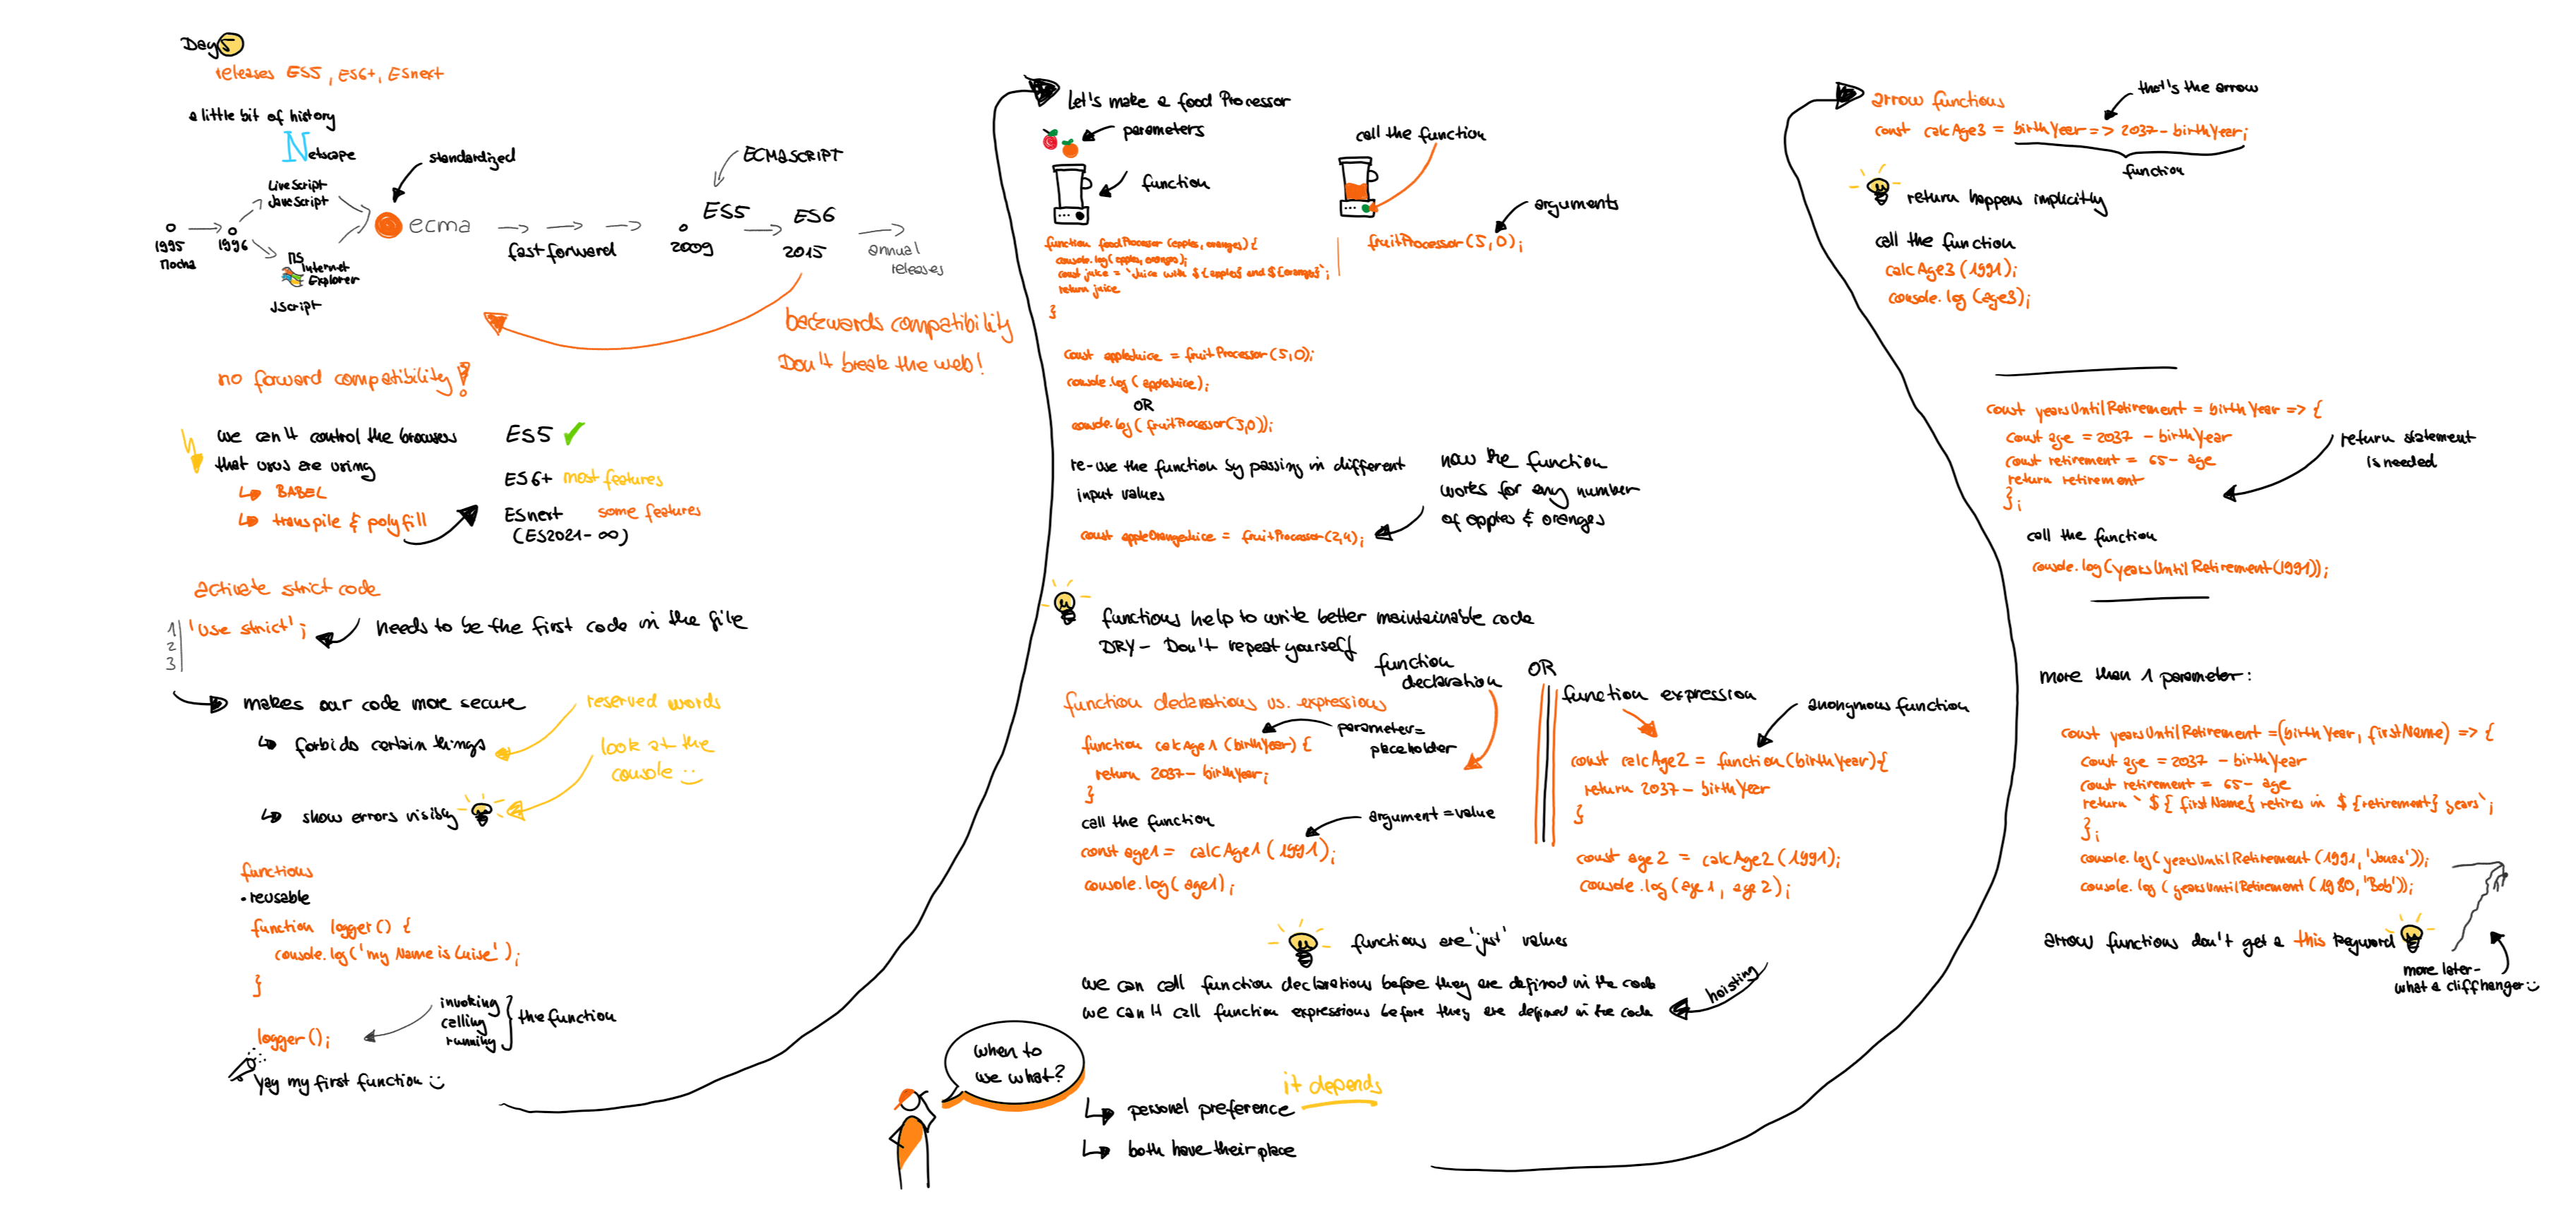 Day 5
releases ES5, ES6+, ESnext
a little bit of history
Netscape
standardized
LiveScript
JavaScript
ecma
1995
Mocha
1996
MS
Internet
Explorer
JScript
fast forward
ECMASCRIPT
ES5
2009
ES6
2015
annual
releases
backwards compatibility
Don't break the web!
no forward compatibility!
we can't control the browsers
that users are using
BABEL
transpile & polyfill
ES5
ES6+ most features
ESnext some features
(ES2021-∞)
activate strict code
1 'use strict';
2
3
needs to be the first code in the file
makes our code more secure
reserved words
forbids certain things
look at the
console
show errors visibly
functions
• reusable
function logger() {
console.log('my Name is Luise');
}
logger();
invoking
calling
running
the function
Yay my first function
Let's make a food Processor
parameters
function
call the function
arguments
function foodProcessor (apples, oranges) {
console.log(apples, oranges);
const juice = `Juice with ${apples} and ${oranges}`;
return juice
}
fruitProcessor(5,0);
const appleJuice = fruitProcessor(5,0);
console.log(appleJuice);
OR
console.log(fruitProcessor(5,0));
re-use the function by passing in different
input values
now the function
works for any number
of apples & oranges
const appleOrangeJuice = fruitProcessor(2,4);
functions help to write better maintainable code
DRY - Don't repeat yourself
function declarations vs. expressions
function
declaration
OR
function expression
parameter=
placeholder
anonymous function
function calcAge1 (birthYear) {
return 2037 - birthYear;
}
call the function
argument = value
const age1 = calcAge1(1991);
console.log(age1);
const calcAge2 = function(birthYear){
return 2037 - birthYear
}
const age2 = calcAge2(1991);
console.log(age1, age2);
functions are 'just' values
we can call function declarations before they are defined in the code
we can't call function expressions before they are defined in the code
hoisting
when to
use what?
it depends
personal preference
both have their place
arrow functions
that's the arrow
const calcAge3 = birthYear => 2037 - birthYear;
function
return happens implicitly
call the function
calcAge3(1991);
console.log(age3);
const yearsUntilRetirement = birthYear => {
const age = 2037 - birthYear
const retirement = 65 - age
return retirement
};
return statement
is needed
call the function
console.log(yearsUntilRetirement(1991));
more than 1 parameter:
const yearsUntilRetirement = (birthYear, firstName) => {
const age = 2037 - birthYear
const retirement = 65 - age
return `${firstName} retires in ${retirement} years`;
};
console.log(yearsUntilRetirement(1991, 'Jonas'));
console.log(yearsUntilRetirement(1980, 'Bob'));
arrow functions don't get a this keyword
more later-
what a cliffhanger